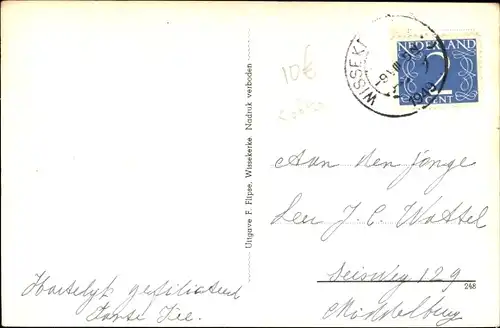 10€
WISSEK
1949
NEDERLAND
2
CENT
Uitgave F. Flipse, Wissekerke. Nadruk verboden
Aan den jonge
Heer J. C. Wattel
Seisweg 129
Middelburg
248
Hartelyk gefeliciteerd
Tante